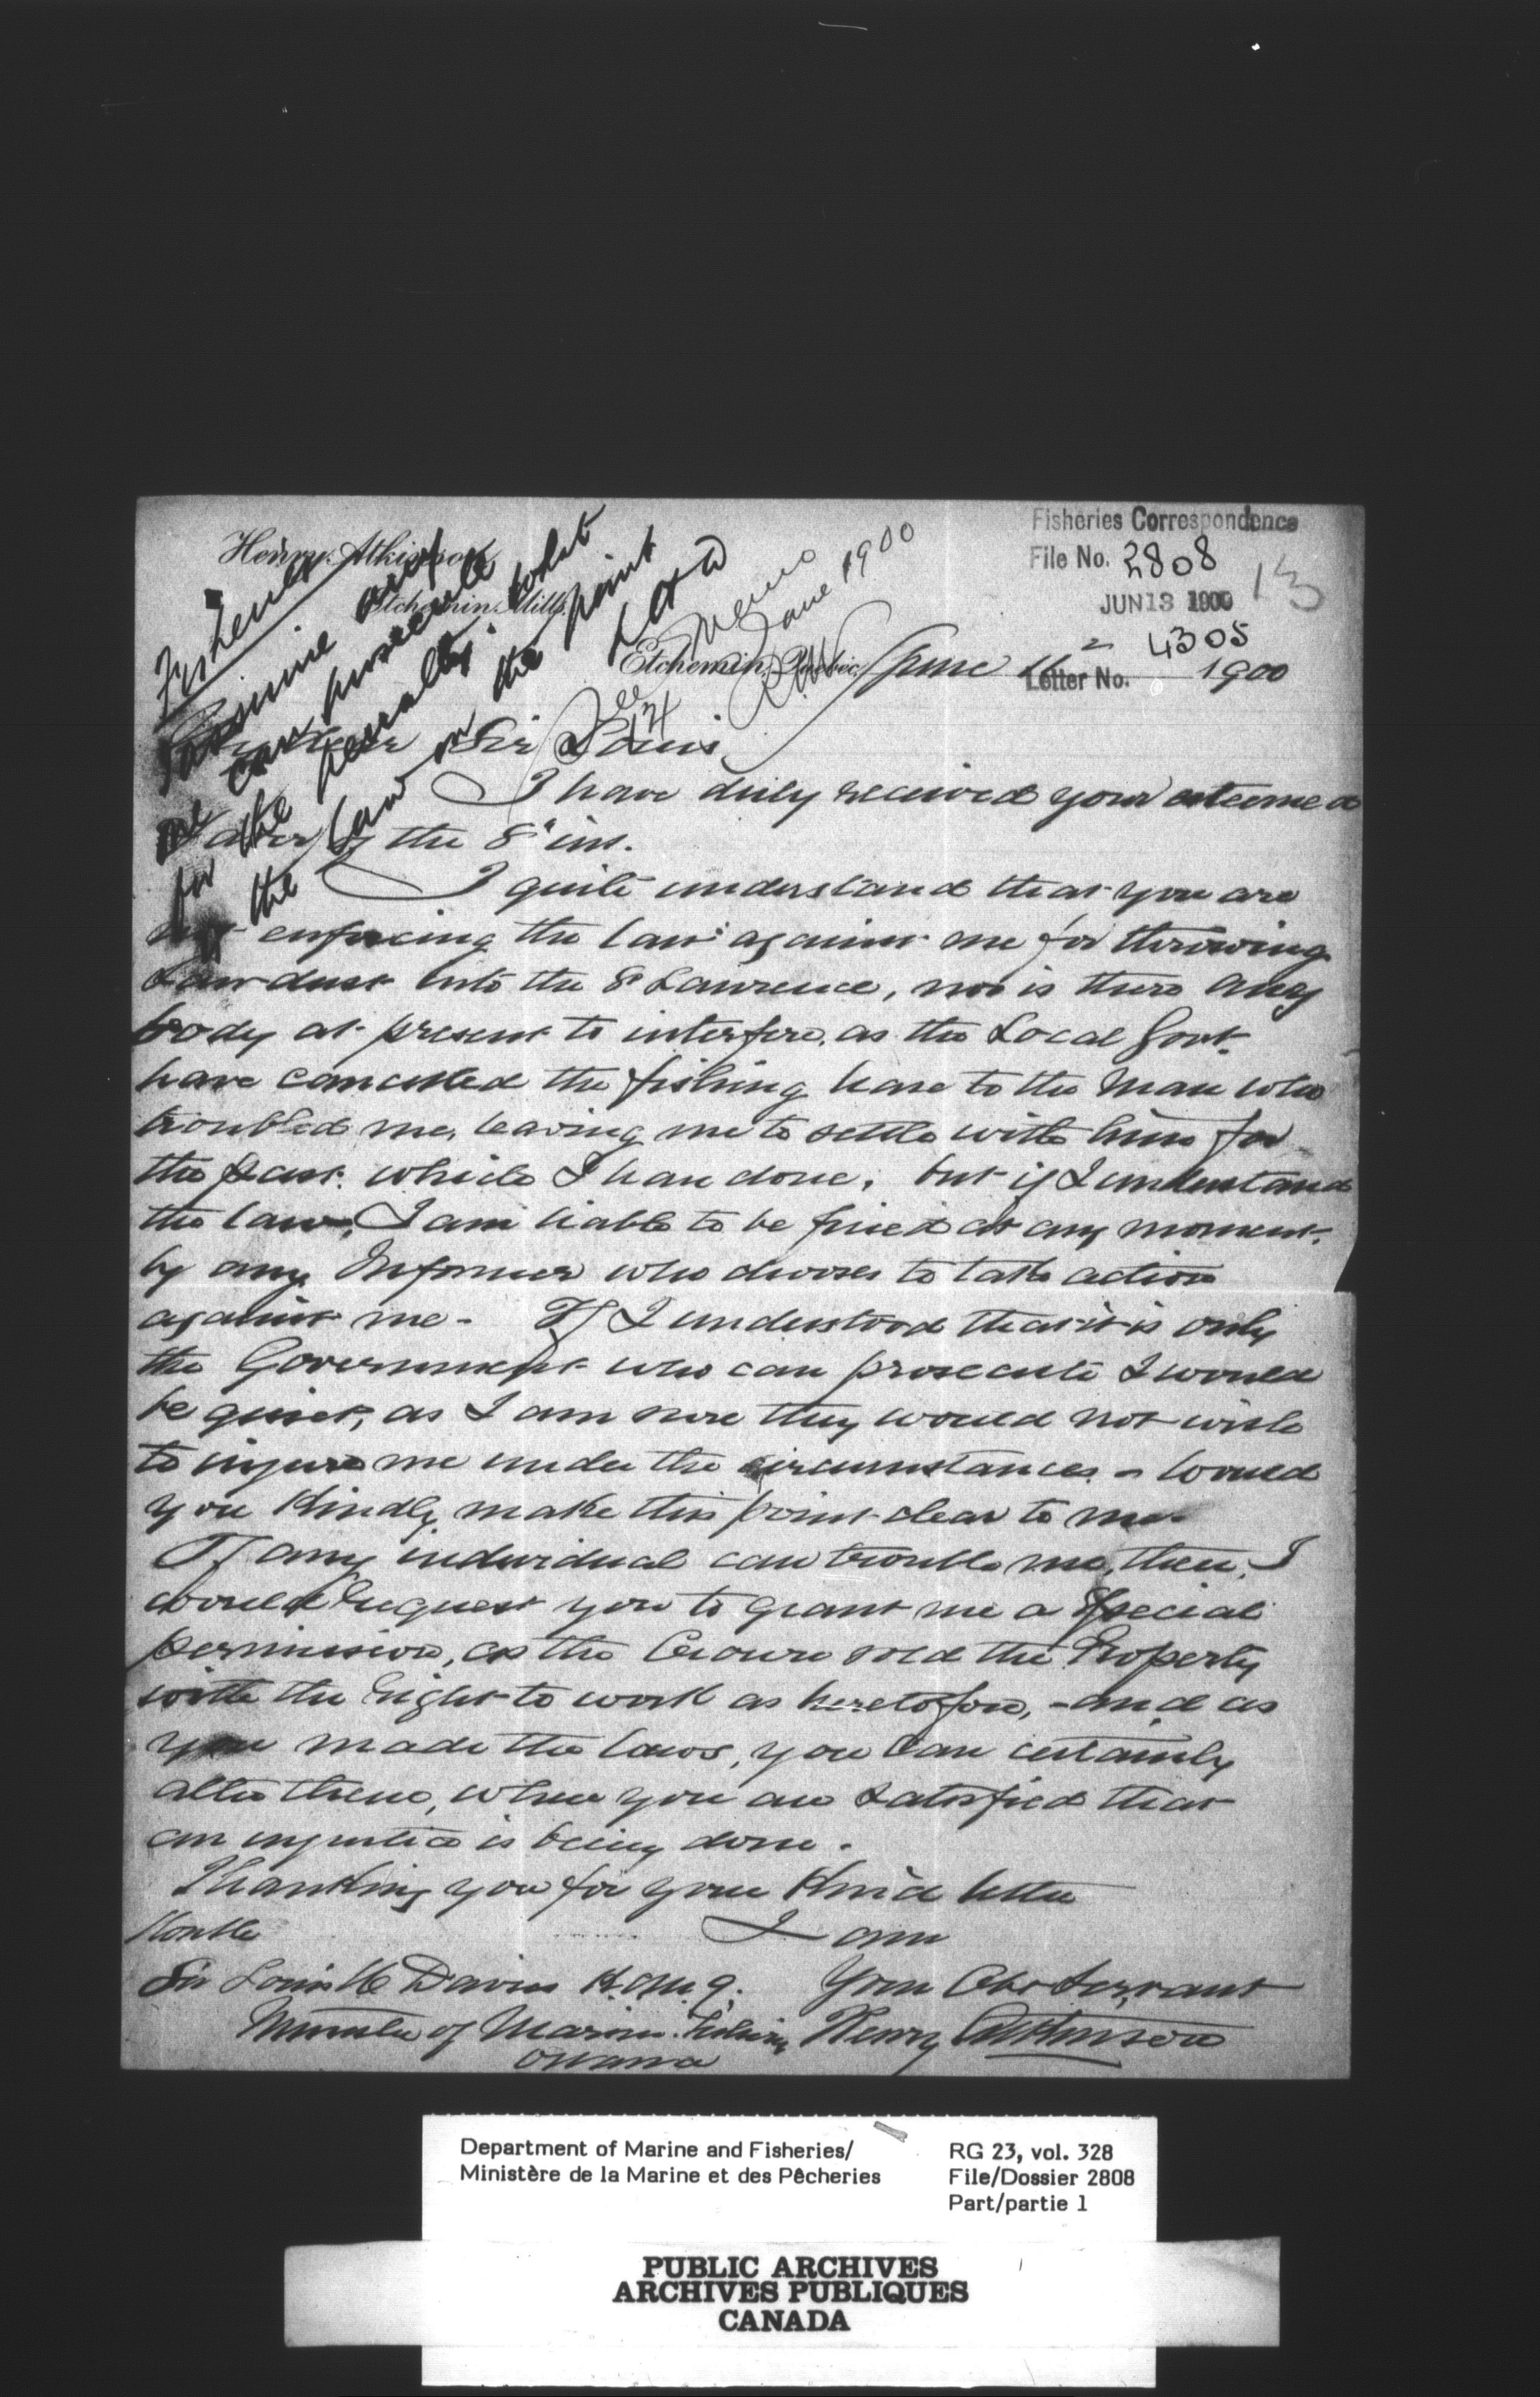 Henry Atkinson
Etchemin Mills.
Fisheries Correspondence
File No. 2808
13
JUN 13 1900
4305
Letter No.
Etchemin, Quebec, June 1900
Fisheries
I presume any
one can prosecute
for the penalty. What
is the law on the point
LHD
See Memo
June 1900
Dear Sir Louis,
I have duly received your esteemed
Favor of the 8" ins.
I quite understand that you are
not enforcing the law against me for throwing
Sawdust into the St Lawrence, nor is there any
body at present to interfere, as the Local Govt.
have cancelled the fishing lease to the man who
troubled me, leaving me to settle with him for
the past. which I have done, but if I understand
the law, I am liable to be fined at any moment.
by any Informer who chooses to take action
against me - If I understood that it is only
the Government who can prosecute I would
be quiet, as I am sure they would not wish
to injure me under the circumstances - Would
you kindly make this point clear to me -
If any individual can trouble me, then, I
would request you to grant me a special
permission, as the Crown sold the Property
with the right to work as heretofore, - and as
you made the laws, you can certainly
alter them, when you are satisfied that
an injustice is being done.
Thanking you for your kind letter
I am
Honble
Sir Louis H Davies K.C.M.G. Your Obt Servant
Minister of Marine & Fisheries Henry Atkinson
Ottawa
Department of Marine and Fisheries/
Ministère de la Marine et des Pêcheries
RG 23, vol. 328
File/Dossier 2808
Part/partie 1
PUBLIC ARCHIVES
ARCHIVES PUBLIQUES
CANADA